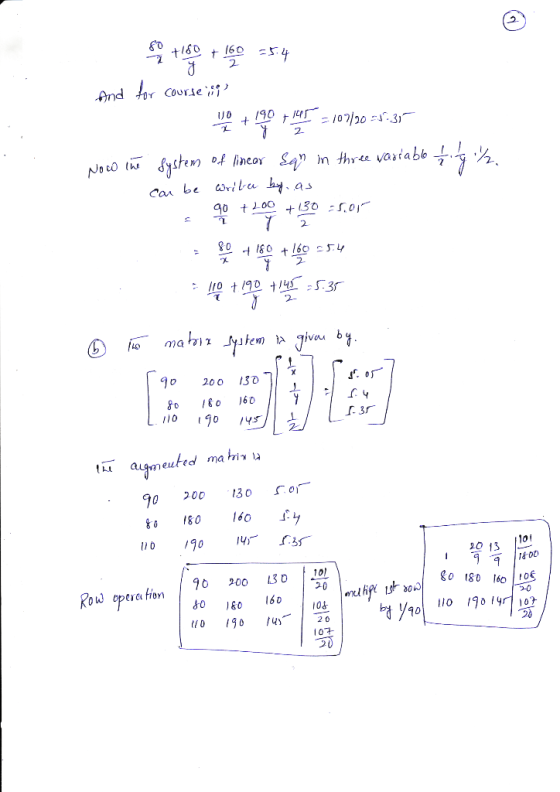 2
80/x + 180/y + 160/z = 5.4
And for course iii,
110/x + 190/y + 145/z = 107/20 = 5.35
Now the system of linear Eqn in three variable 1/x, 1/y, 1/z,
Can be writen by. as
= 90/x + 200/y + 130/z = 5.05
= 80/x + 180/y + 160/z = 5.4
= 110/x + 190/y + 145/z = 5.35
(b) The matrix system is given by.
[90 200 130] [1/x] = [5.05]
[80 180 160] [1/y] [5.4]
[110 190 145] [1/z] [5.35]
The augmented matrix is
90 200 130 5.05
80 180 160 5.4
110 190 145 5.35
Row operation
90 200 130 | 101/20
80 180 160 | 108/20
110 190 145 | 107/20
multiple 1st row by 1/90
1 20/9 13/9 | 101/1800
80 180 160 | 108/20
110 190 145 | 107/20